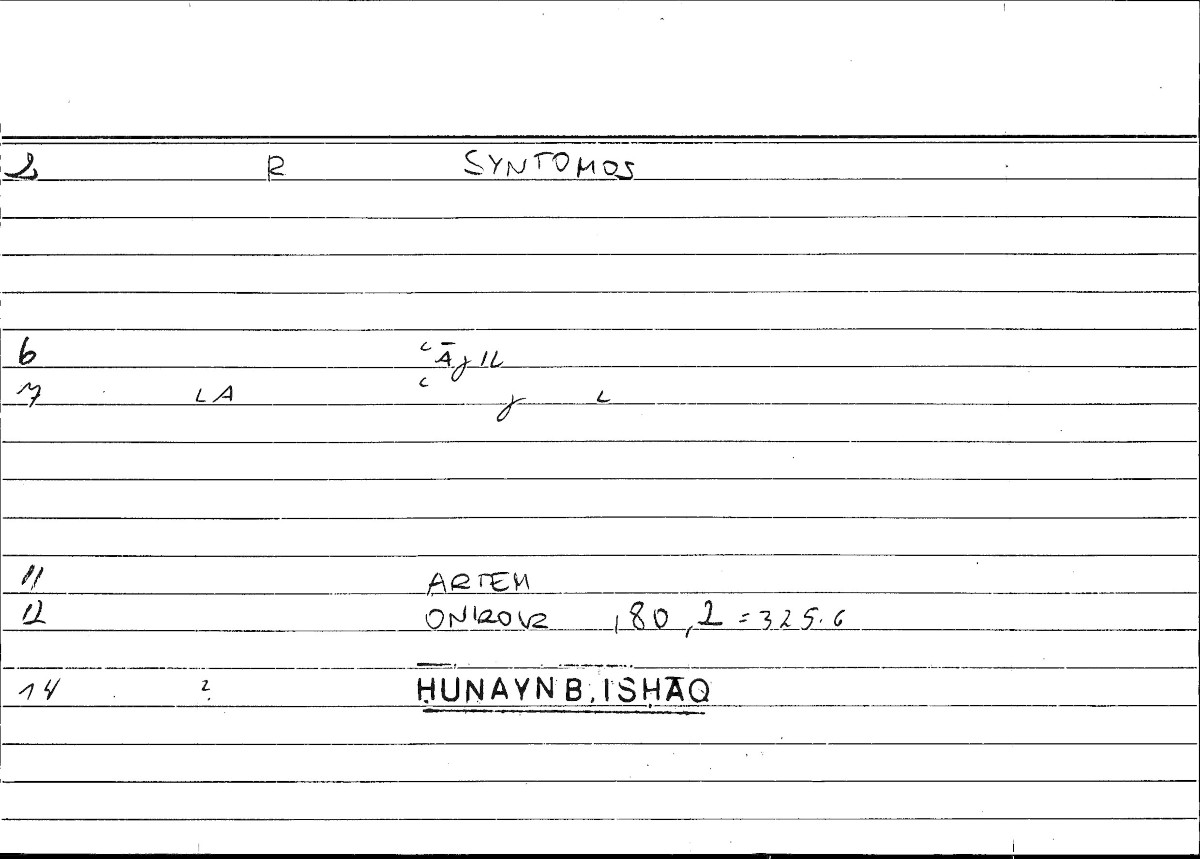 2 R SYNTOMOS
6 ʿĀJIL
7 LA ʿ J L
11 ARTEM
12 ONIROCR 180,2 = 325.6
14 ? ḤUNAYN B. ISḤĀQ